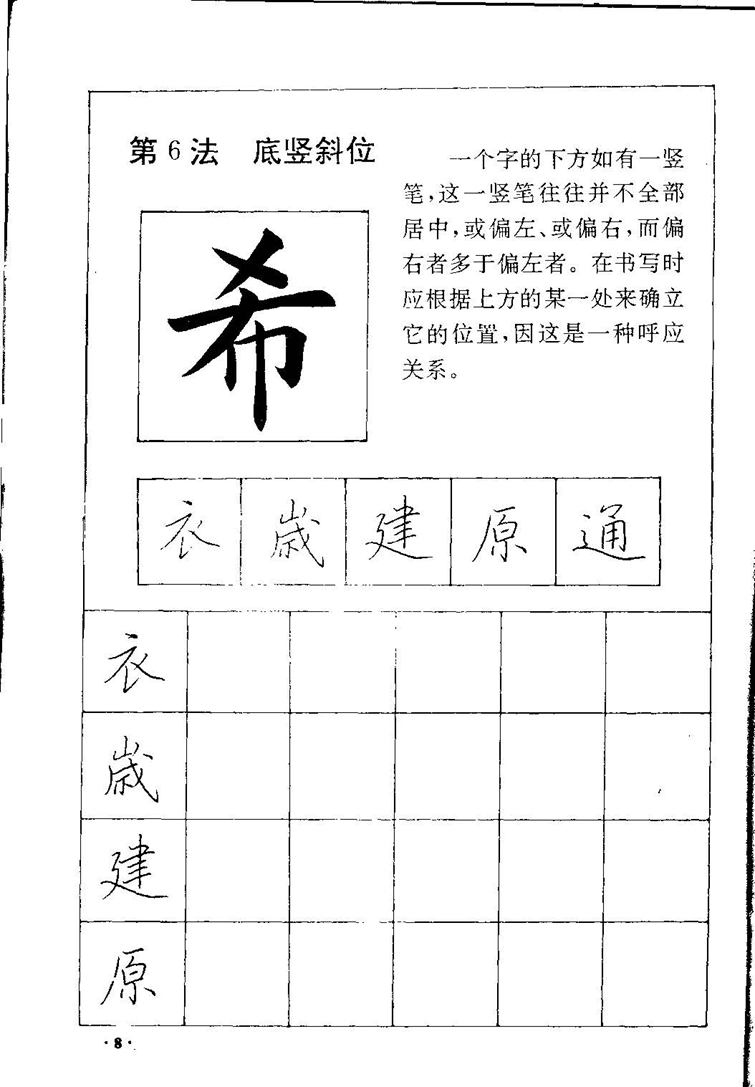 第6法　底竖斜位
一个字的下方如有一竖
笔,这一竖笔往往并不全部
居中,或偏左、或偏右,而偏
右者多于偏左者。在书写时
应根据上方的某一处来确立
它的位置,因这是一种呼应
关系。
希
衣 歳 建 原 通
衣
歳
建
原
·8·